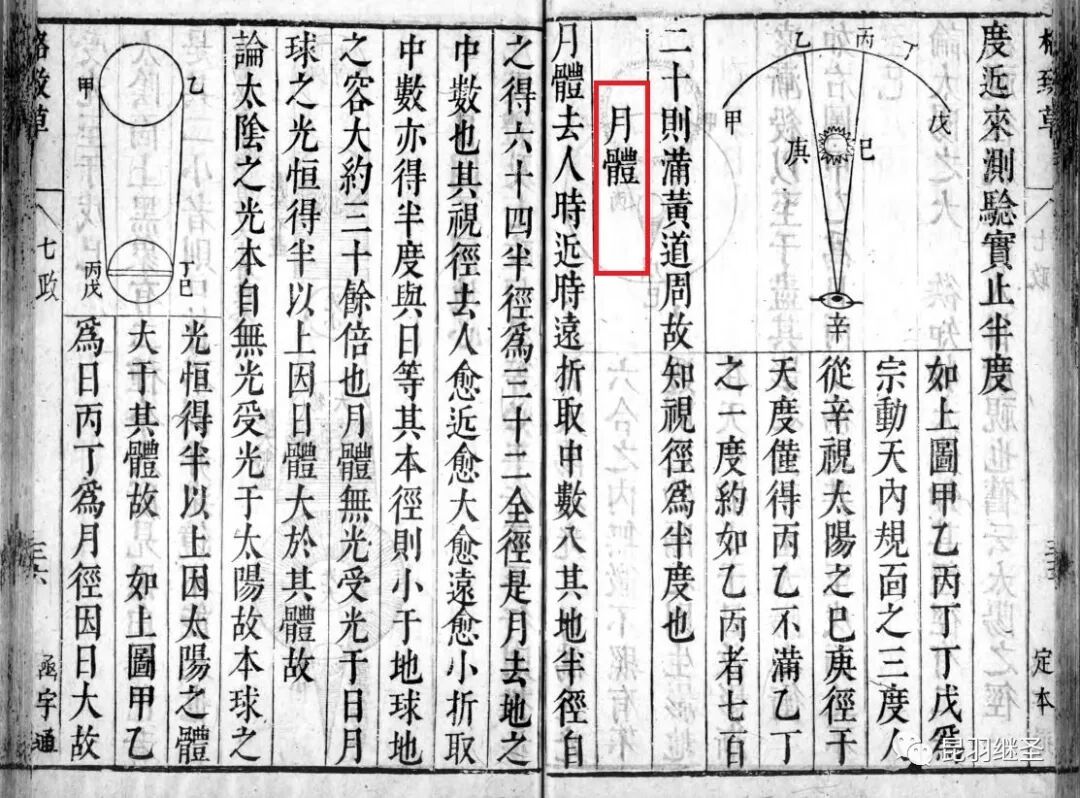 格致草
七政
定本
度近來測驗實止半度
乙 丙 丁
甲 戊
庚 巳
辛
如上圖甲乙丙丁丁戊爲
宗動天內規靣之三度人
從辛視太陽之巳庚徑于
天度僅得丙乙不滿乙丁
之一度約如乙丙者七百
二十則滿黃道周故知視徑爲半度也
月體
月體去人時近時遠折取中數八其地半徑自
之得六十四半徑爲三十二全徑是月去地之
中數也其視徑去人愈近愈大愈遠愈小折取
中數亦得半度與日等其本徑則小于地球地
之容大約三十餘倍也月體無光受光于日月
球之光恒得半以上因日體大於其體故
論太陰之光本自無光受光于太陽故本球之
甲 乙
丙戊 丁巳
光恒得半以上因太陽之體
大于其體故 如上圖甲乙
爲日丙丁爲月徑因日大故
格致草
七政
函宇通
昆羽继圣